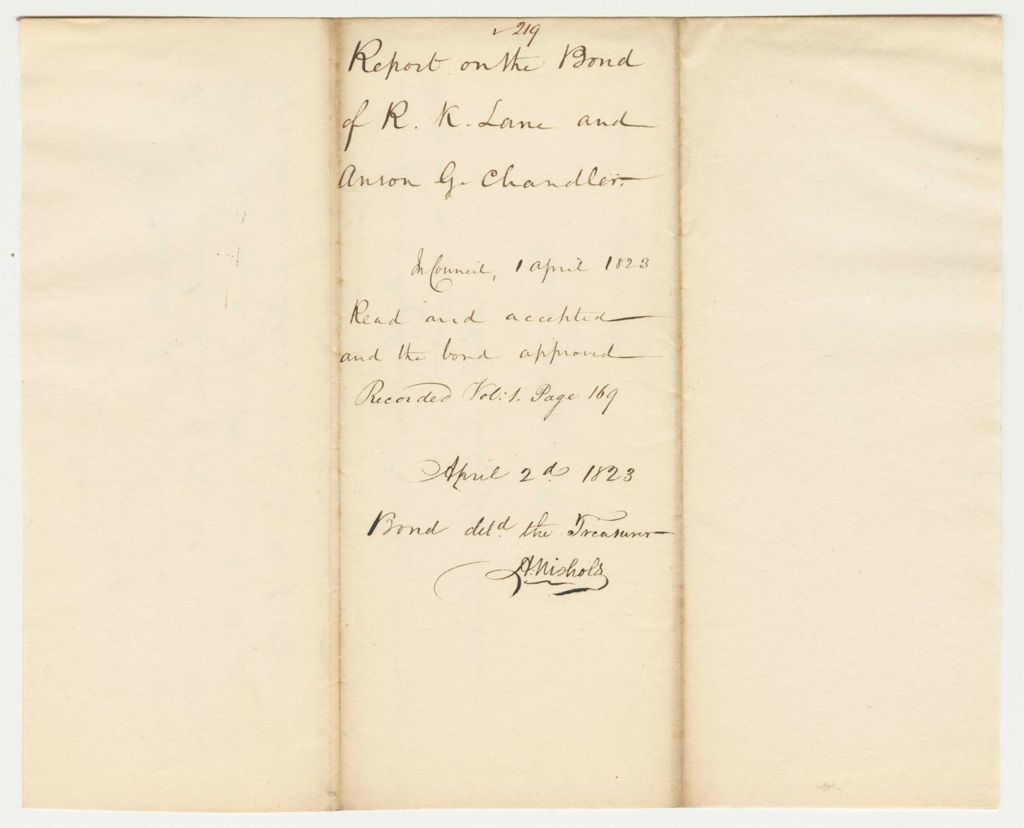 219
Report on the Bond
of R. K. Lane and
Anson G. Chandler.
In Council, 1 April 1823
Read and accepted
and the bond approved
Recorded Vol: 1. Page 169
April 2d 1823
Bond deld the Treasurer
A. Nichols